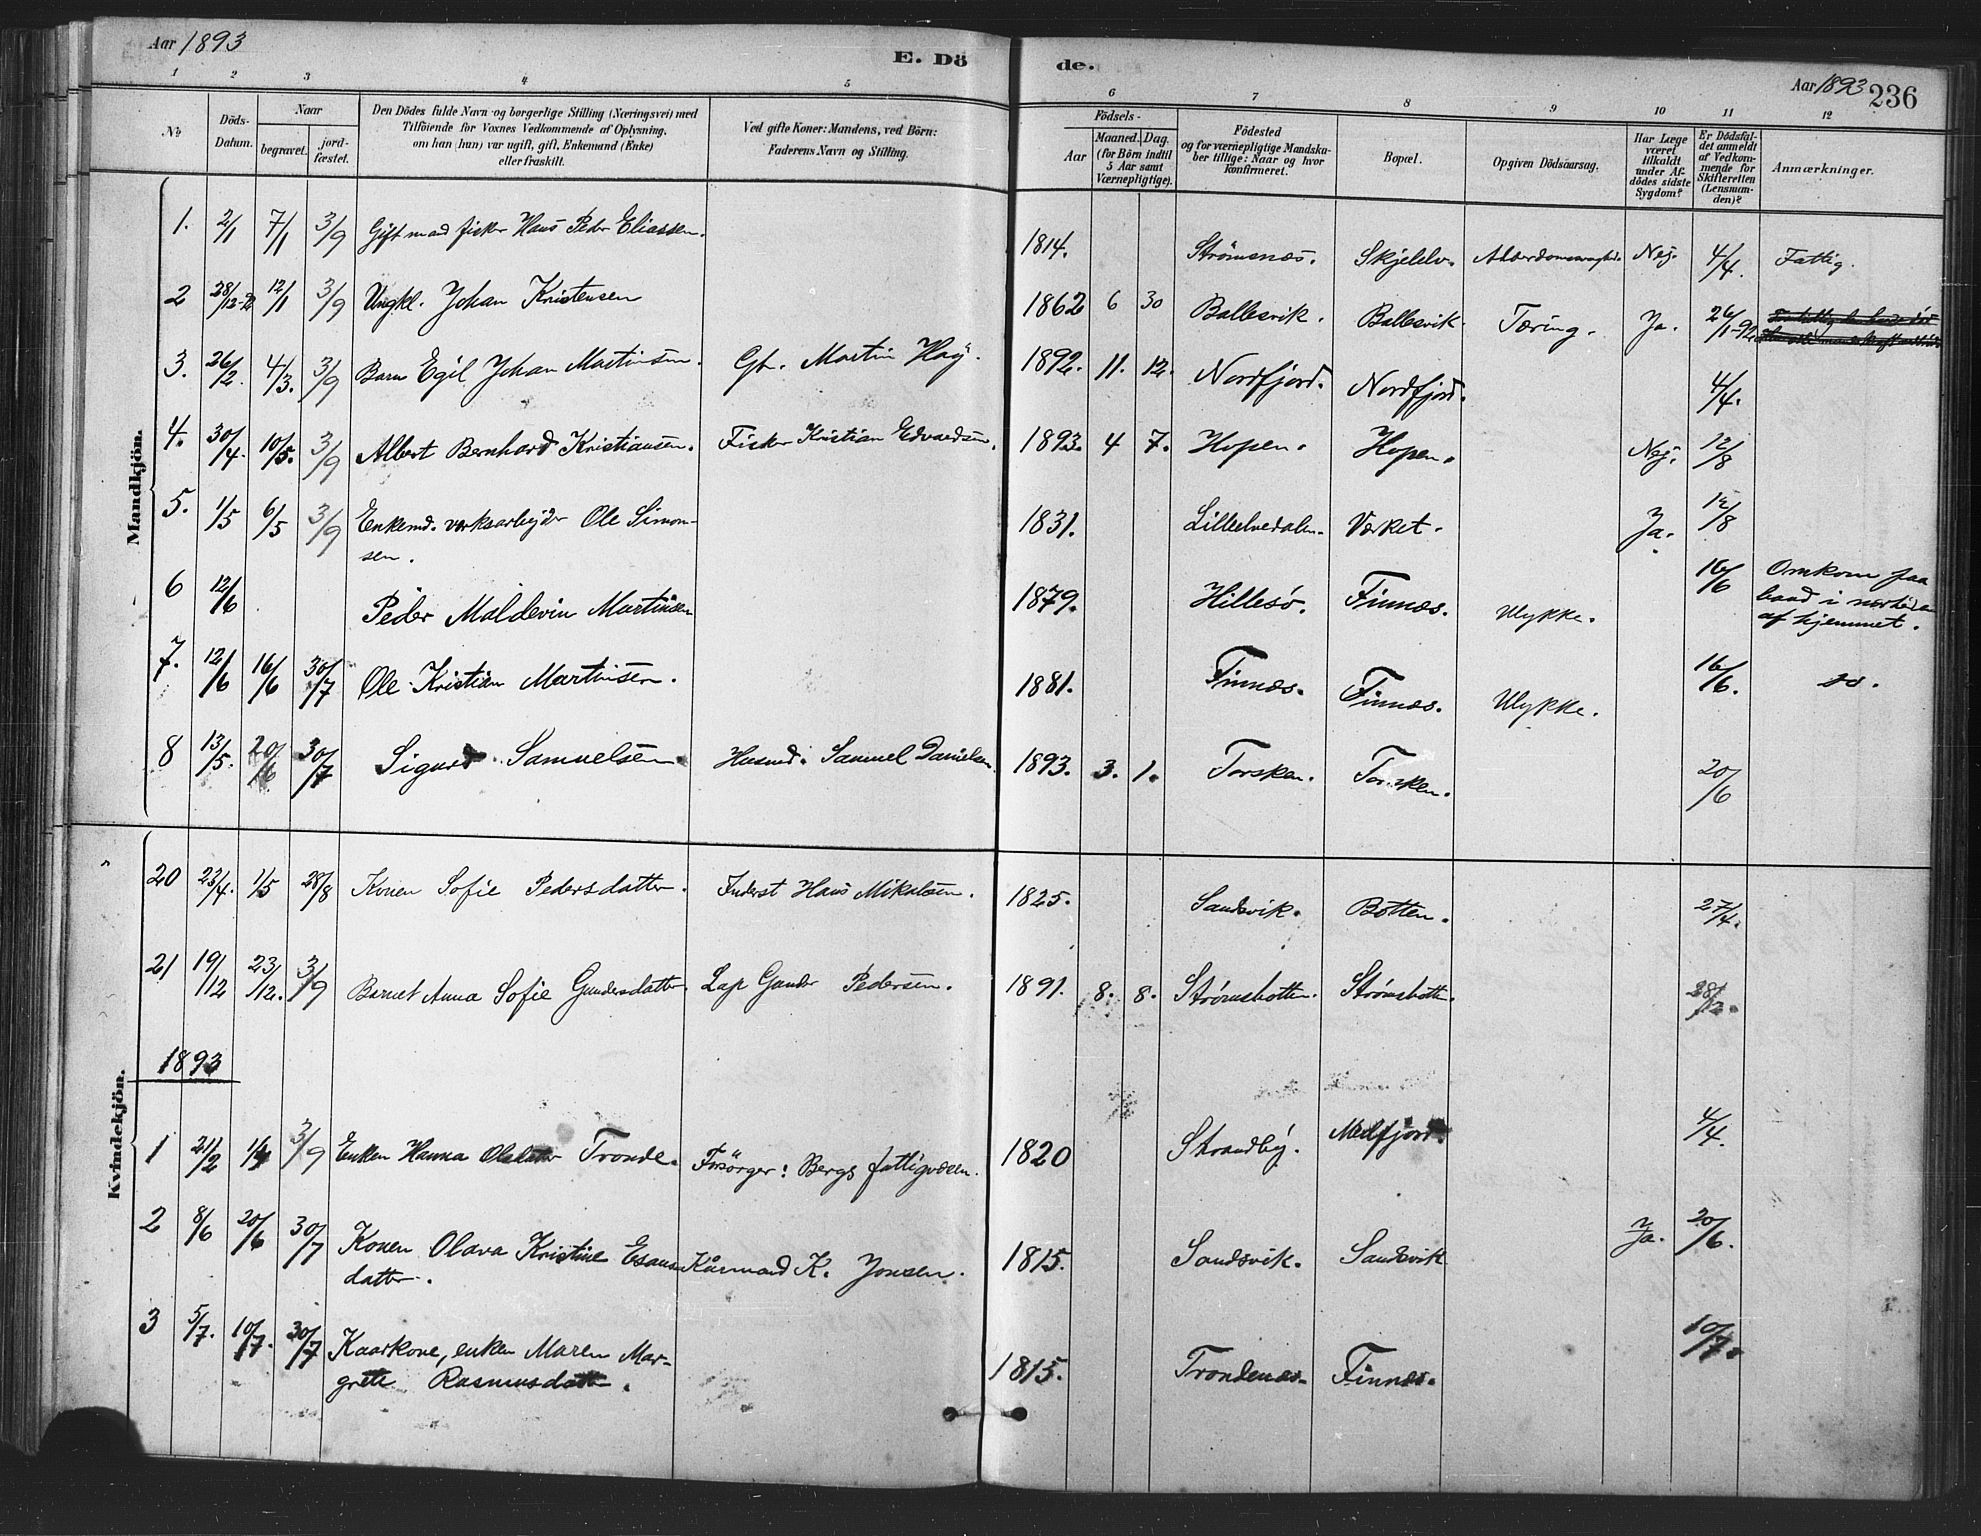 Aar 1893
E. Dö
de.
Aar 1893 236
1 2 3 4 5 6 7 8 9 10 11 12
No
Döds-Datum.
Naar
begravet. jordfæstet.
Den Dödes fulde Navn og borgerlige Stilling (Næringsvei) med
Tilföiende for Voxnes Vedkommende af Oplysning,
om han (hun) var ugift, gift, Enkemand (Enke)
eller fraskilt.
Ved gifte Koner: Mandens, ved Börn:
Faderens Navn og Stilling.
Födsels-
Aar Maaned. Dag.
(for Börn indtil
5 Aar samt
Værnepligtige).
Födested
og for værnepligtige Mandskaber
tillige: Naar og hvor
konfirmeret.
Bopæl.
Opgiven Dödsaarsag.
Har Læge
været
tilkaldt
under Afdödes
sidste
Sygdom?
Er Dödsfaldet
anmeldt
af Vedkommende
for
Skifteretten
(Lensmanden)?
Anmærkninger.
Mandkjön.
1. 2/1 7/1 3/9 Gift mand fisker Hans Peder Eliassen. 1814. Strømsnæs. Skjelelv. Alderdomssvaghed. Nej. 4/4. Fattig.
2 28/12-92 12/1 3/9 Ungkl. Johan Kristensen 1862 6 30 Ballesvik. Ballesvik. Tæring. Ja. 26/11-92
3. 26/2. 4/3. 3/9 Barn Egil Johan Martinsen. Gb. Martin Høy. 1892. 11. 12. Nordfjord. Nordfjord. 4/4.
4. 30/4. 10/5. 3/9 Albert Bernhard Kristiansen. Fisker Kristian Edvardsen. 1893. 4 7. Hopen. Hopen. Nej. 12/8
5. 1/5 6/5 3/9 Enkemd. verksarbejder Ole Simonsen. 1831. Lilleelvedalen. Værket. Ja. 12/8
6 12/6 Peder Maldevin Martinsen 1879. Hillesø. Finnæs. Ulykke. 16/6 Omkom paa
baad i nærheden
af hjemmet.
7. 12/6 16/6 30/7 Ole Kristian Martinsen. 1881. Finnæs. Finnæs. Ulykke. 16/6. do.
8 13/5. 20/6 30/7 Sigurd Samuelsen. Husmd. Samuel Danielsen. 1893. 3. 1. Torsken. Torsken. 20/6
Kvindekjön.
20 23/4. 1/5 28/8 Konen Sofie Pedersdatter. Inderst Hans Mikalsen. 1825. Sandsvik. Botten. 27/4.
21 19/12 23/12. 3/9 Barnet Anna Sofie Gundersdatter Lap Gunder Pedersen. 1891. 8. 8. Strømsbotten. Strømsbotten. 28/12.
1893
1 21/2 1/4 3/9 Enken Hanna Olsdatter Tronde. Forsörger: Bergs fattigvæsen. 1820 Strandby. Medfjord. 4/4.
2 8/6 20/6 30/7 Konen Olava Kristine Esaus Kårmand K. Jonsen. 1815. Sandsvik. Sandsvik Ja. 20/6.
datter.
3 5/7. 10/7. 30/7 Kaarkone, enken Maren Mar- 1815. Trondenæs. Finnæs. 10/7.
grete Rasmusdatter.